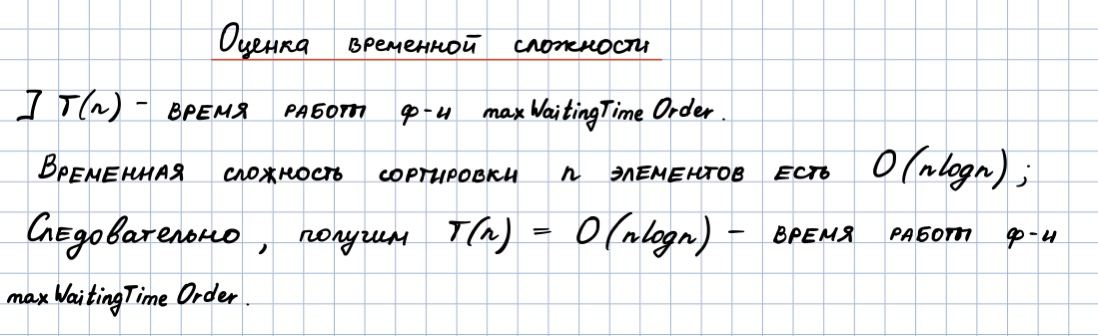 Оценка временной сложности
] T(n) - время работы ф-и maxWaitingTimeOrder.
Временная сложность сортировки n элементов есть O(nlogn);
Следовательно, получим T(n) = O(nlogn) - время работы ф-и
maxWaitingTimeOrder.